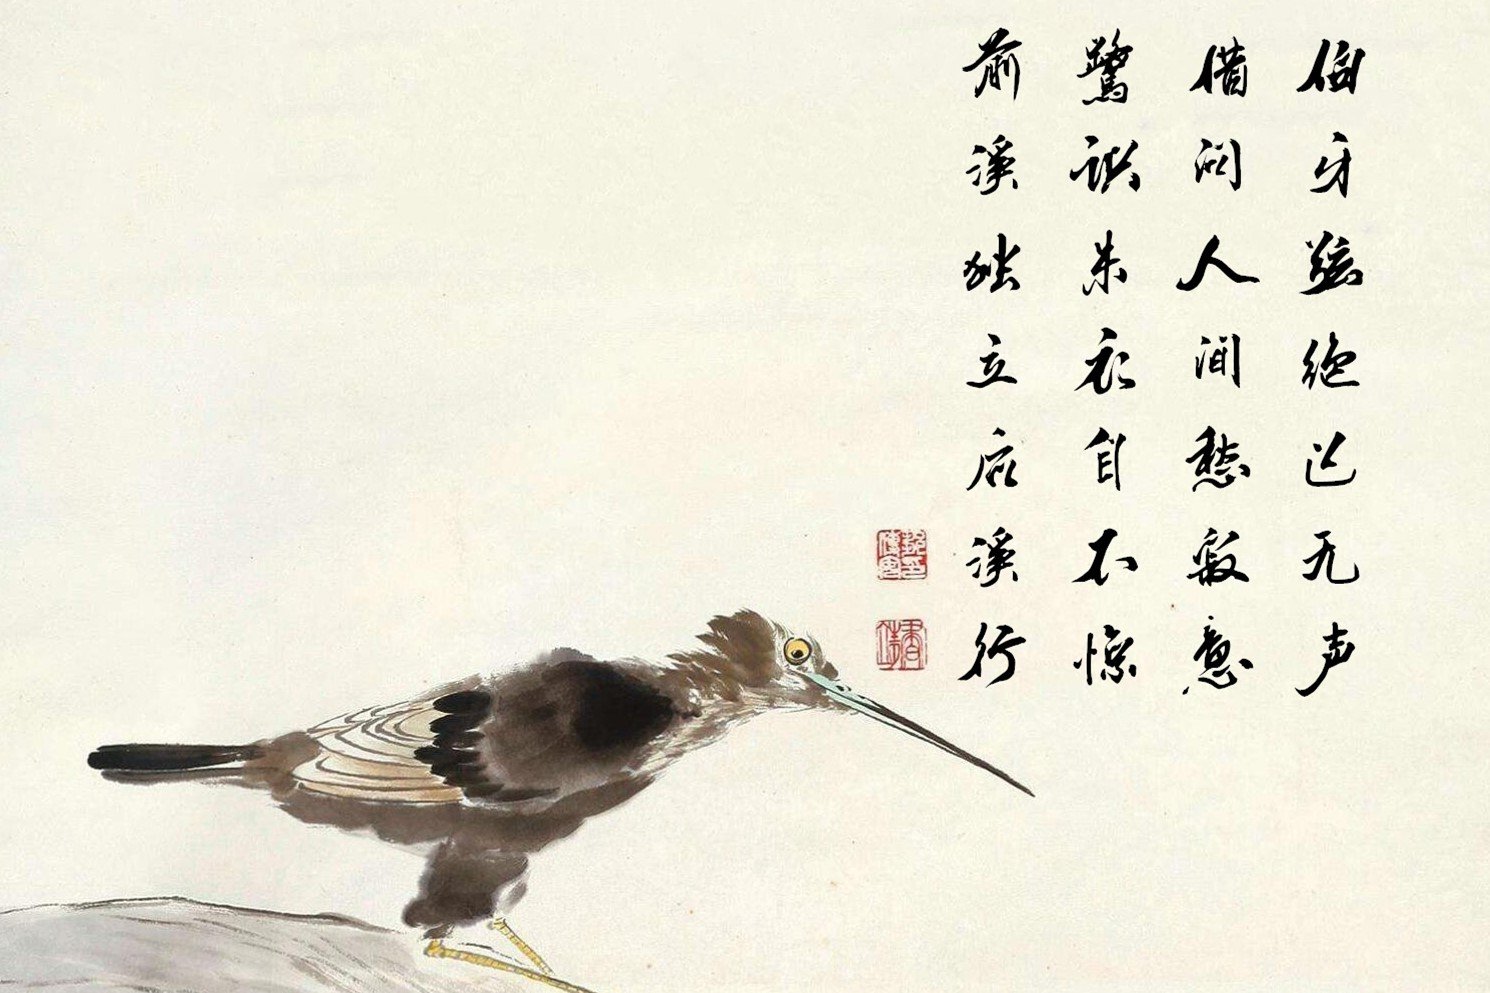 前溪独立后溪行
鷺识朱衣自不惊
借问人间愁寂意
伯牙弦绝已无声